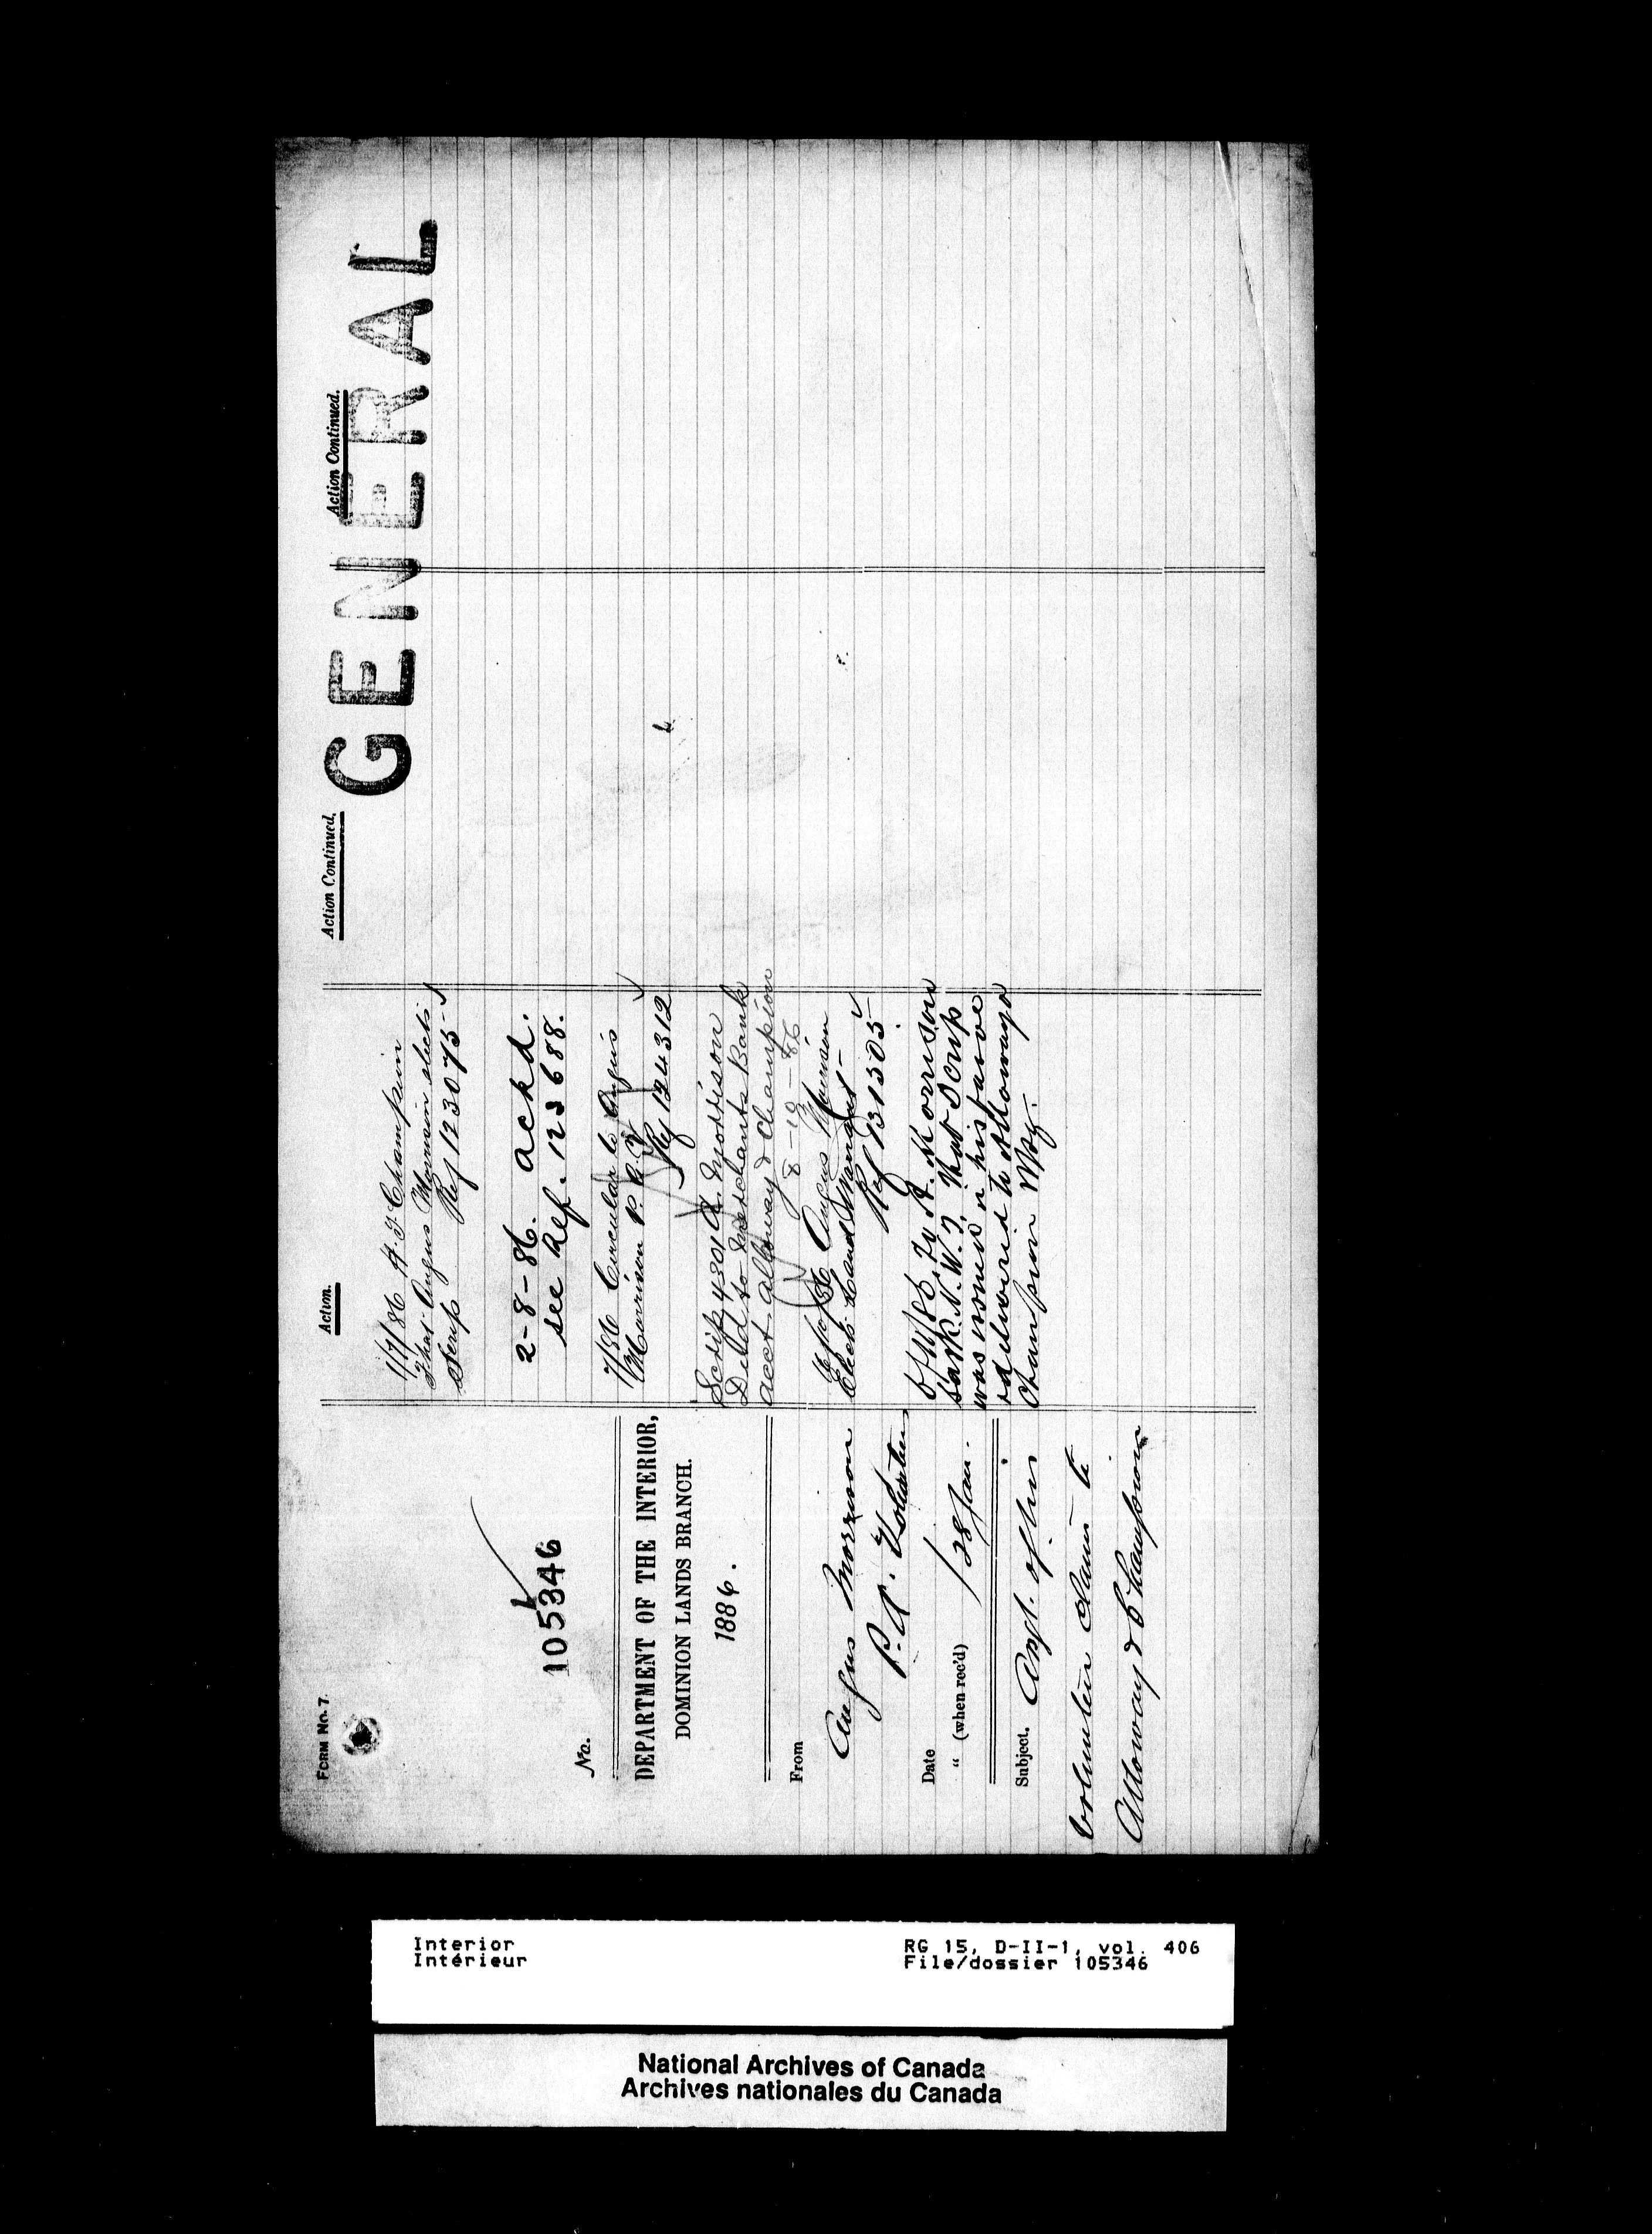 FORM No. 7.
No.
105346
DEPARTMENT OF THE INTERIOR,
DOMINION LANDS BRANCH.
1886.
From
Angus Morrison
P.A. Volunteer
Date
" (when rec'd) 28 Jan.
Subject. Asgt. of his
Volunteer claim to
Alloway & Champion
Action.
1/7/86 H. J. Champion
That Angus Morrison elects
Scrip Ref 123075
2-8-86. ackd.
see Ref. 123688.
Circular to Angus
Morrison P.A.
Ref 124312
Scrip 4301 A. Morrison
Deld to Merchants Bank
acct Alloway & Champion
8-10-86
Angus Morrison
Elects Land Grant
Ref 131505
To A. Morrison
Sask. N.W.T. that Scrip
was issued in his favor
& delivered to Alloway &
Champion Wpg.
Action Continued.
Action Continued.
GENERAL
Interior
Intérieur
RG 15, D-II-1, vol. 406
File/dossier 105346
National Archives of Canada
Archives nationales du Canada